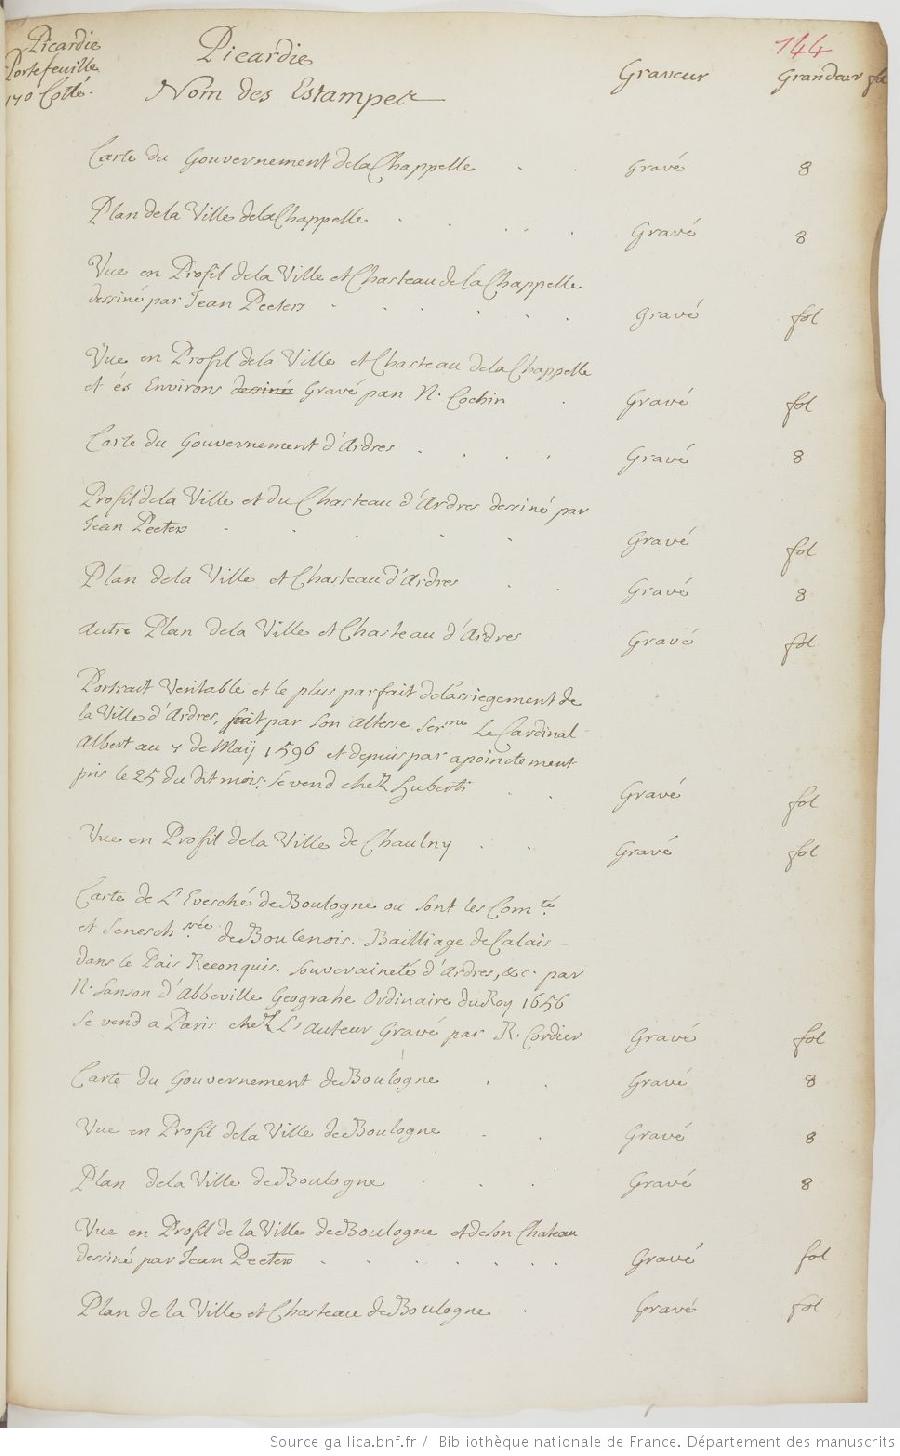 Picardie
Portefeuille
170 Cotté.
Picardie
144
Nom des Estampes
Graveur
Grandeur
Carte du Gouvernement de la Chappelle . Gravé 8
Plan de la Ville de la Chappelle . . . . . Gravé 8
Vue en Profil de la Ville et Chasteau de la Chappelle.
dessiné par Jean Peeters . . . . . Gravé fol
Vue en Profil de la Ville et Chasteau de la Chappelle
et és Environs dessiné Gravé par N. Cochin . Gravé fol
Carte du Gouvernement d'Ardres . . . . Gravé 8
Profil de la Ville et du Chasteau d'Ardres dessiné par
Jean Peeters . . . . . Gravé fol
Plan de la Ville et Chasteau d'Ardres . Gravé 8
autre Plan de la Ville et Chasteau d'Ardres Gravé fol
Portrait Veritable et le plus parfait de l'assiegement de
la Ville d'Ardres, fait par son altesse Ser.me Le Cardinal
Albert au de Maij 1596 et depuis par apointement
pris le 25 du dit mois. se vend chez Huberti . . Gravé fol
Vue en Profil de la Ville de Chaulny . . Gravé fol
Carte de L'Evesché de Boulogne ou sont les Com.té
et Senesch.sée de Boulenois. Bailliage de Calais
dans le Pais Reconquis. souveraineté d'Ardres, &c. par
N. Sanson d'Abbeville Geograhe Ordinaire du Roy 1656
se vend a Paris chez L'auteur Gravé par R. Cordier Gravé fol
Carte du Gouvernement de Boulogne . . Gravé 8
Vue en Profil de la Ville de Boulogne . . Gravé 8
Plan de la Ville de Boulogne . . . Gravé 8
Vue en Profil de la Ville de Boulogne et de son Chateau
dessiné par Jean Peeters . . . . . . . Gravé fol
Plan de la Ville et Chasteau de Boulogne . Gravé fol
Source gallica.bnf.fr / Bibliothèque nationale de France. Département des manuscrits